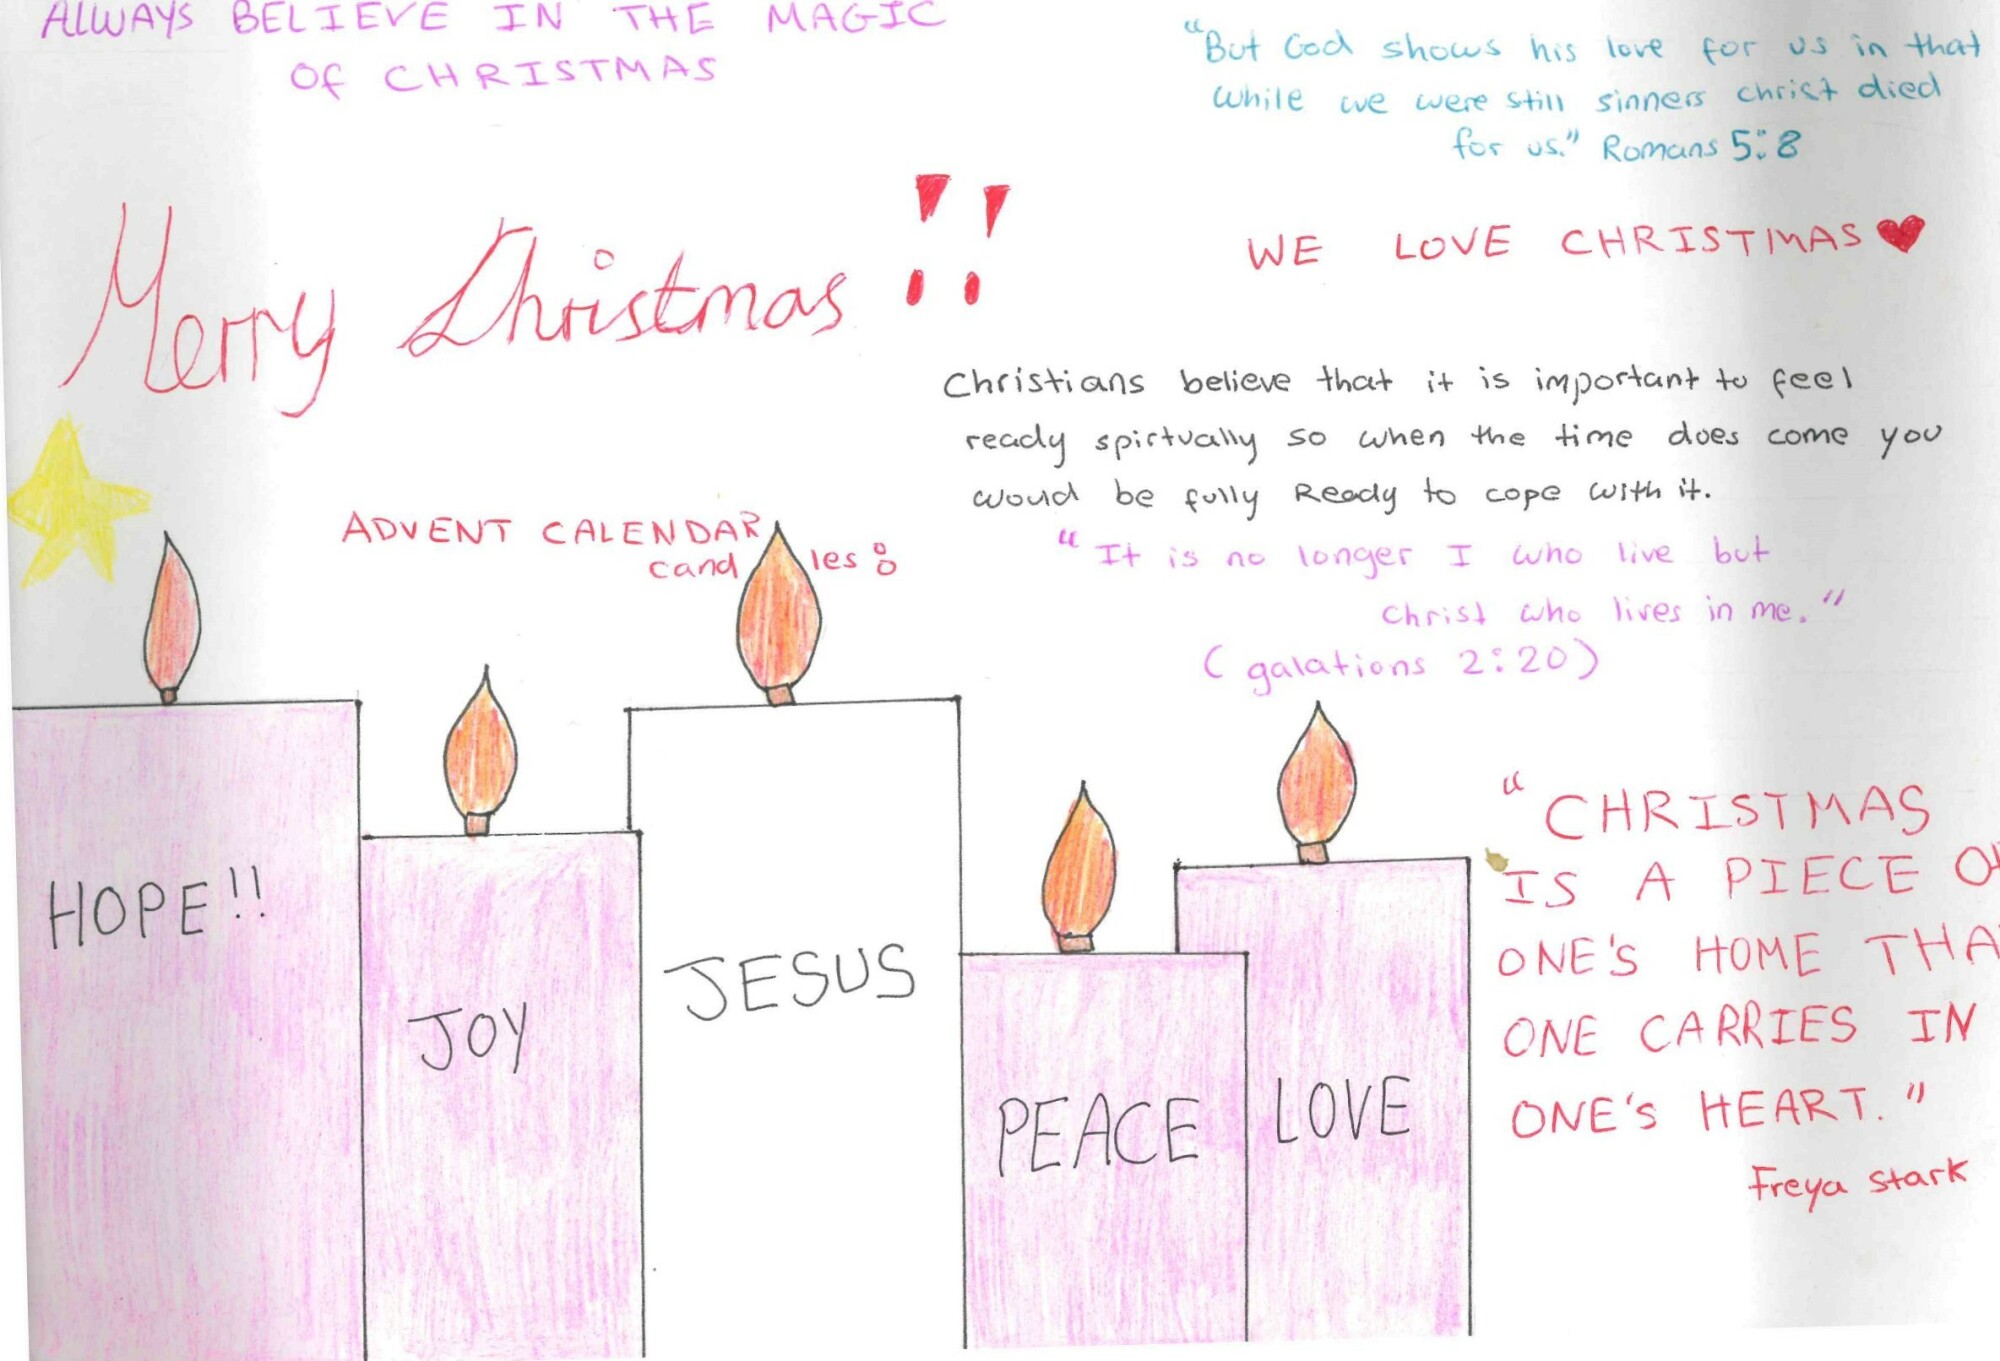 ALWAYS BELIEVE IN THE MAGIC
OF CHRISTMAS
"But God shows his love for us in that
while we were still sinners christ died
for us." Romans 5:8
Merry Christmas !!
WE LOVE CHRISTMAS
Christians believe that it is important to feel
ready spirtually so when the time does come you
would be fully Ready to cope with it.
ADVENT CALENDAR
candles:
"It is no longer I who live but
Christ who lives in me."
(galations 2:20)
HOPE!!
JOY
JESUS
PEACE
LOVE
"CHRISTMAS
IS A PIECE OF
ONE'S HOME THA
ONE CARRIES IN
ONE'S HEART."
Freya stark